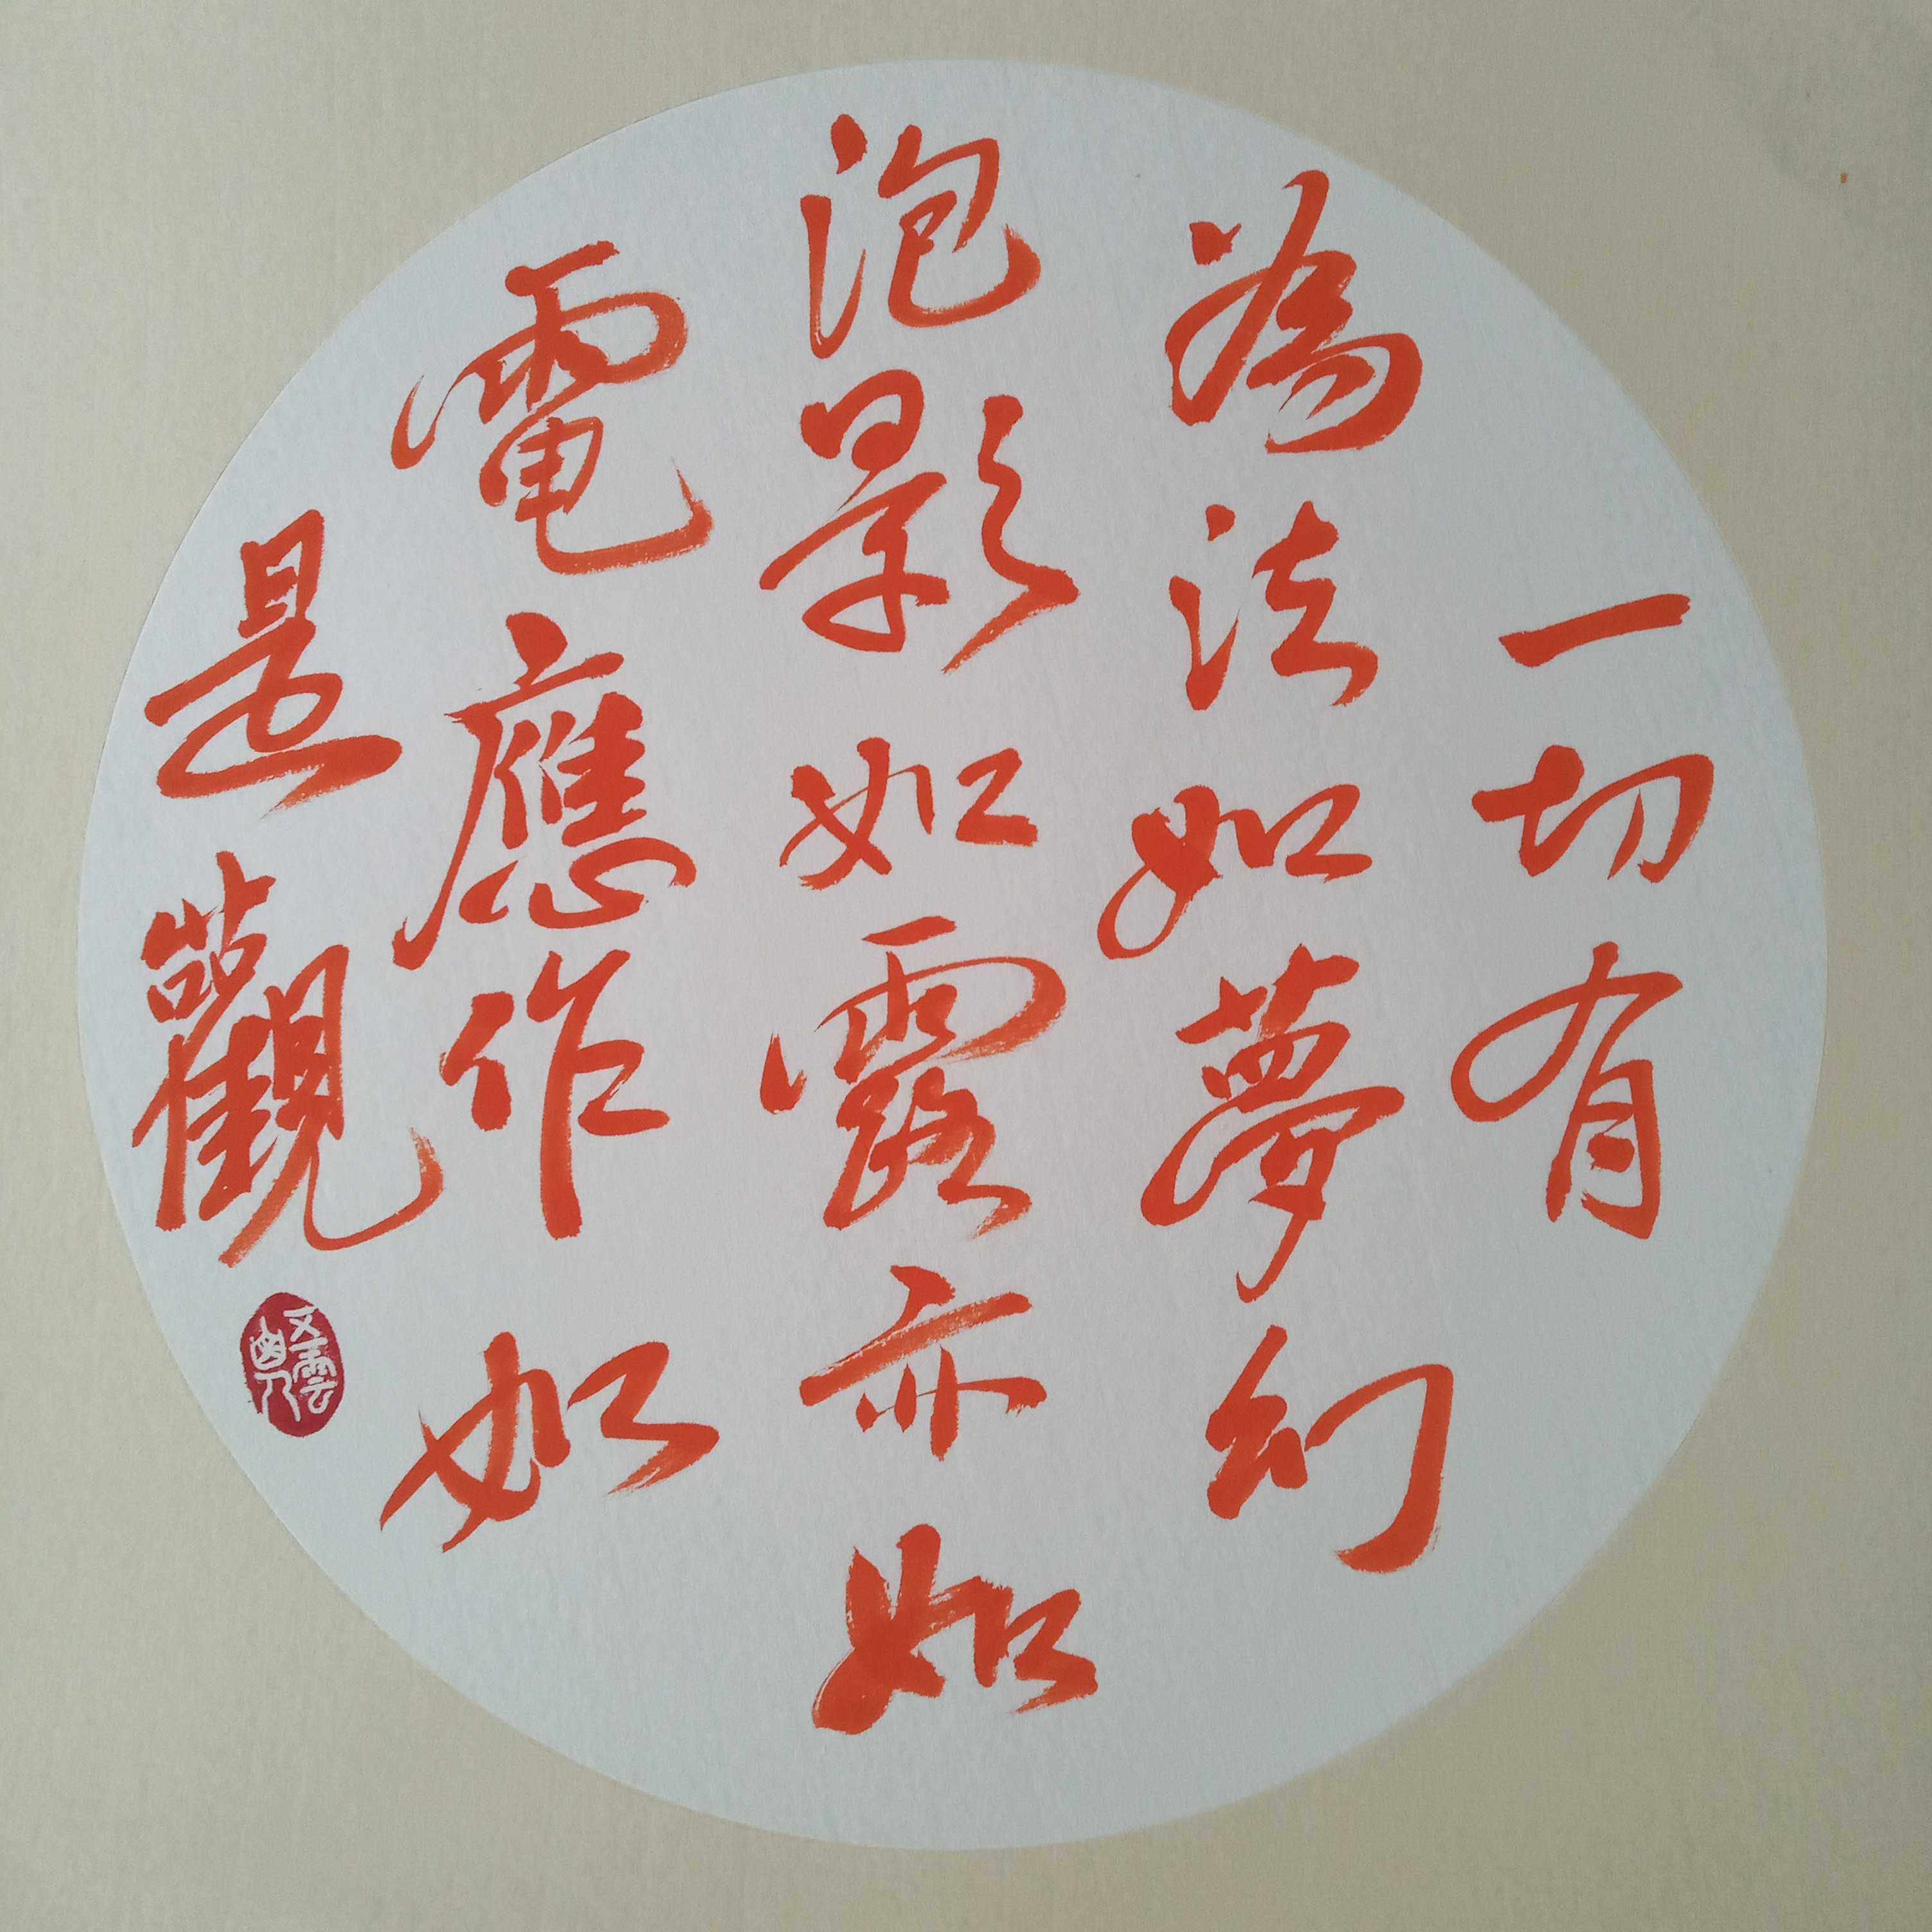 一切有
為法如夢幻
泡影如露亦如
電應作如
是觀